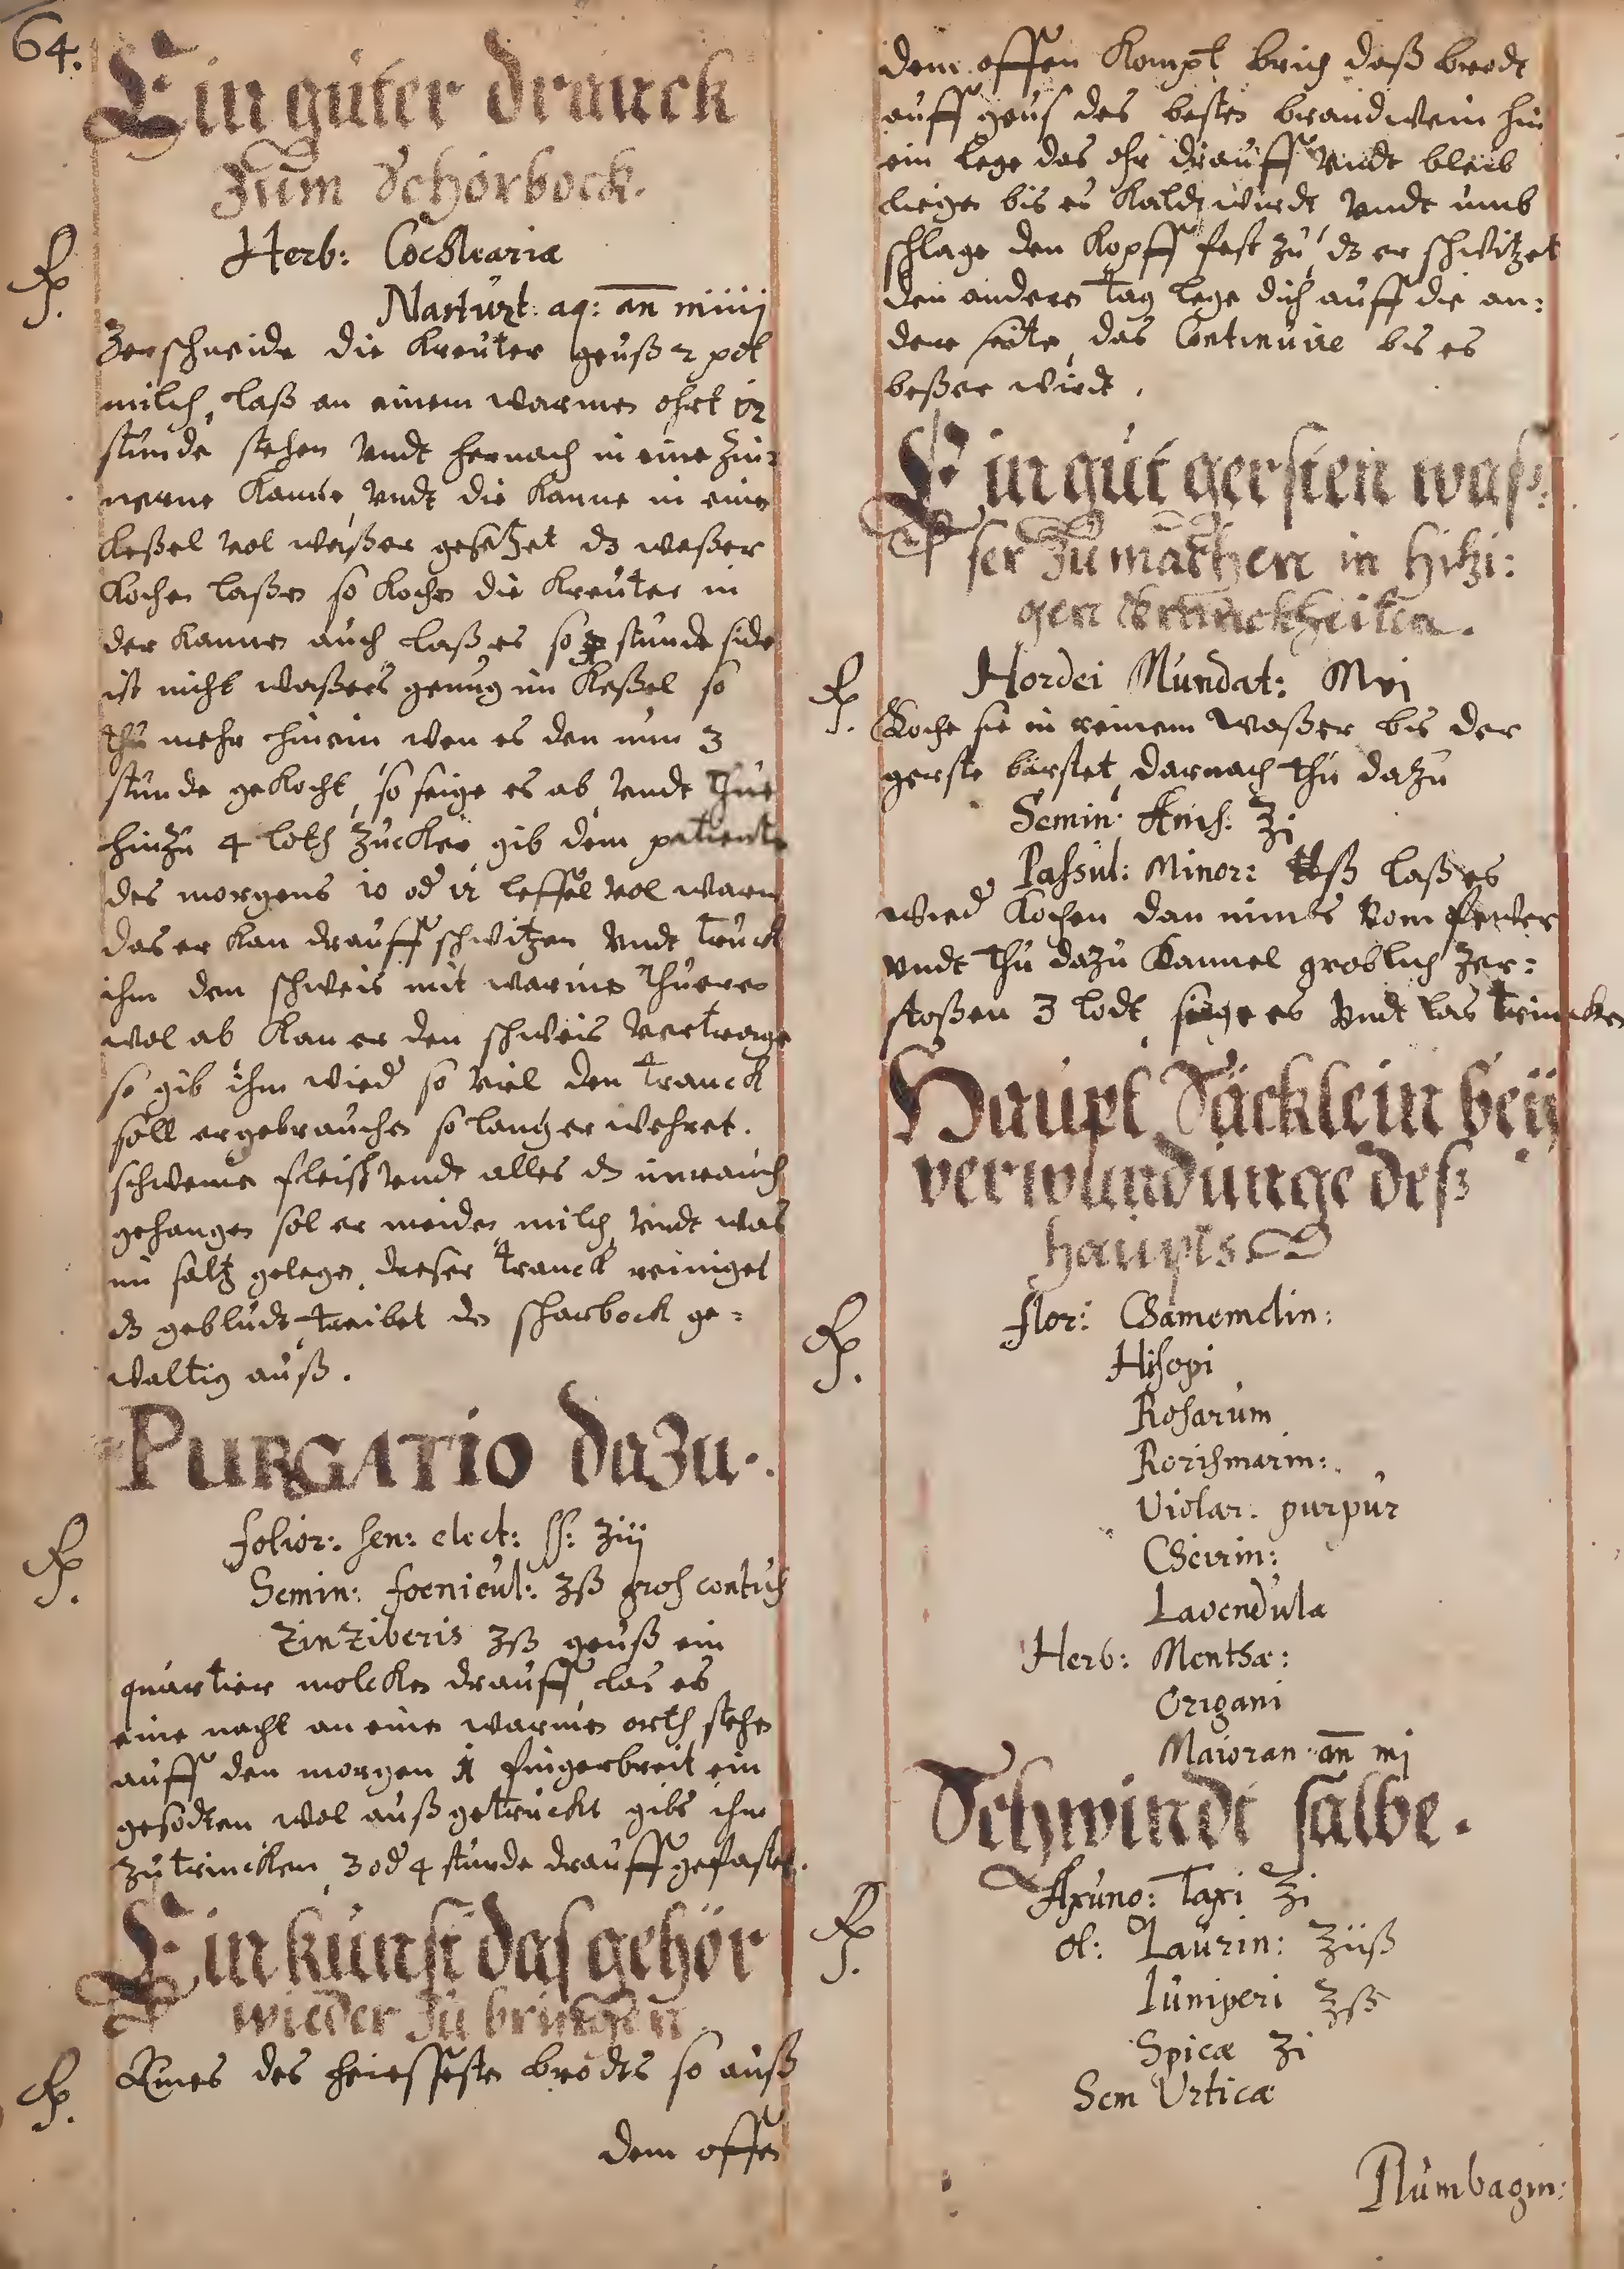 64.
Ein guter dranck
Zum Schorbock.
Rp. Herb: Cochleariæ
Nasturt: aq: an miiij
Zerschneide die Kreuter geuß 2 pot
milch, laß an einem warmen ohrt 12
stunde stehen undt hernach in eine Zin:
nerne Kanne, undt die Kanne in eine
Keßel vol waßer gesetzet dz waßer
Kochen laßen so Kochen die Kreuter in
der Kannen auch laß es so 3 stunde side
ist nicht waßers genug im Keßel so
thu mehr hinein wen es den nun 3
stunde gekocht, so seige es ab, undt thue
hinzu 4 loth Zucker gib dem patiente
des morgens 10 od 12 leffel vol warm
das er kan drauff schwitzen undt truck
ihm den schweis mit warmen thüern
wol ab Kan er den schweis vertrage
so gib ihm wied so viel den tranck
soll er gebrauchen so lang er wehret.
schweine fleisch undt alles dz im rauch
gehangen sol er meiden, milch undt was
im saltz gelegen, dieser tranck reiniget
dz geblüdt treibet den scharbock ge=
waltig auß.
PURGATIO dazu.
Rp. folior: sen: elect: ss: ʒiij
Semin: foenicul: ʒß gros contus
Zinziberis ʒß geuß ein
quartier molcken drauff, las es
eine nacht an einen warmen orth stehn
auff den morgen 1 fingerbreit ein
gesodten wol auß getruckt gibs ihm
zu trincken, 3 od 4 stunde drauff gefastet.
Ein kunst das gehör
wieder zu bringen
Rp. Nims des heissesten brodts so auß
dem offen
dem offen Kompt brich daß brodt
auff geus des besten brandwein hin
ein lege das ohr drauff undt bleib
liegen bis es Kaldt wirdt undt umb
schlage den Kopff fest zu, dz er schwitzet
den andern tag lege dich auff die an:
dere seite, das Continuire bis es
beßer wirdt.
Ein gut gersten was:
ser zu machen in hitzi:
gen Kranckheiten.
Rp. Hordei Mundat: Mvj
Koche sie in reinem waßer bis der
gerste bärstet, darnach thu dazu
Semin: Anis: ℥i
Passul: Minor: ℔ß laß es
wied Kochen dan nimbs vom fewer
undt thu dazu Kannel groblich zer:
stoßen 3 lodt seige es undt las trincken
Haupt Säcklein beÿ
verwundunge deß
haupts
Rp. flor: Chamemelin:
Hisopi
Rosarum
Rorismarin:
Violar. purpur
Cheirin:
Lavendula
Herb: Menthæ:
Origani
Maioran an mj
Schwindt salbe.
Rp. Axung: Taxi ℥i
ol: Laurin: ℥iiß
Iuniperi ℥ß
Spicæ ʒi
Sem Urticæ
Plumbagin: